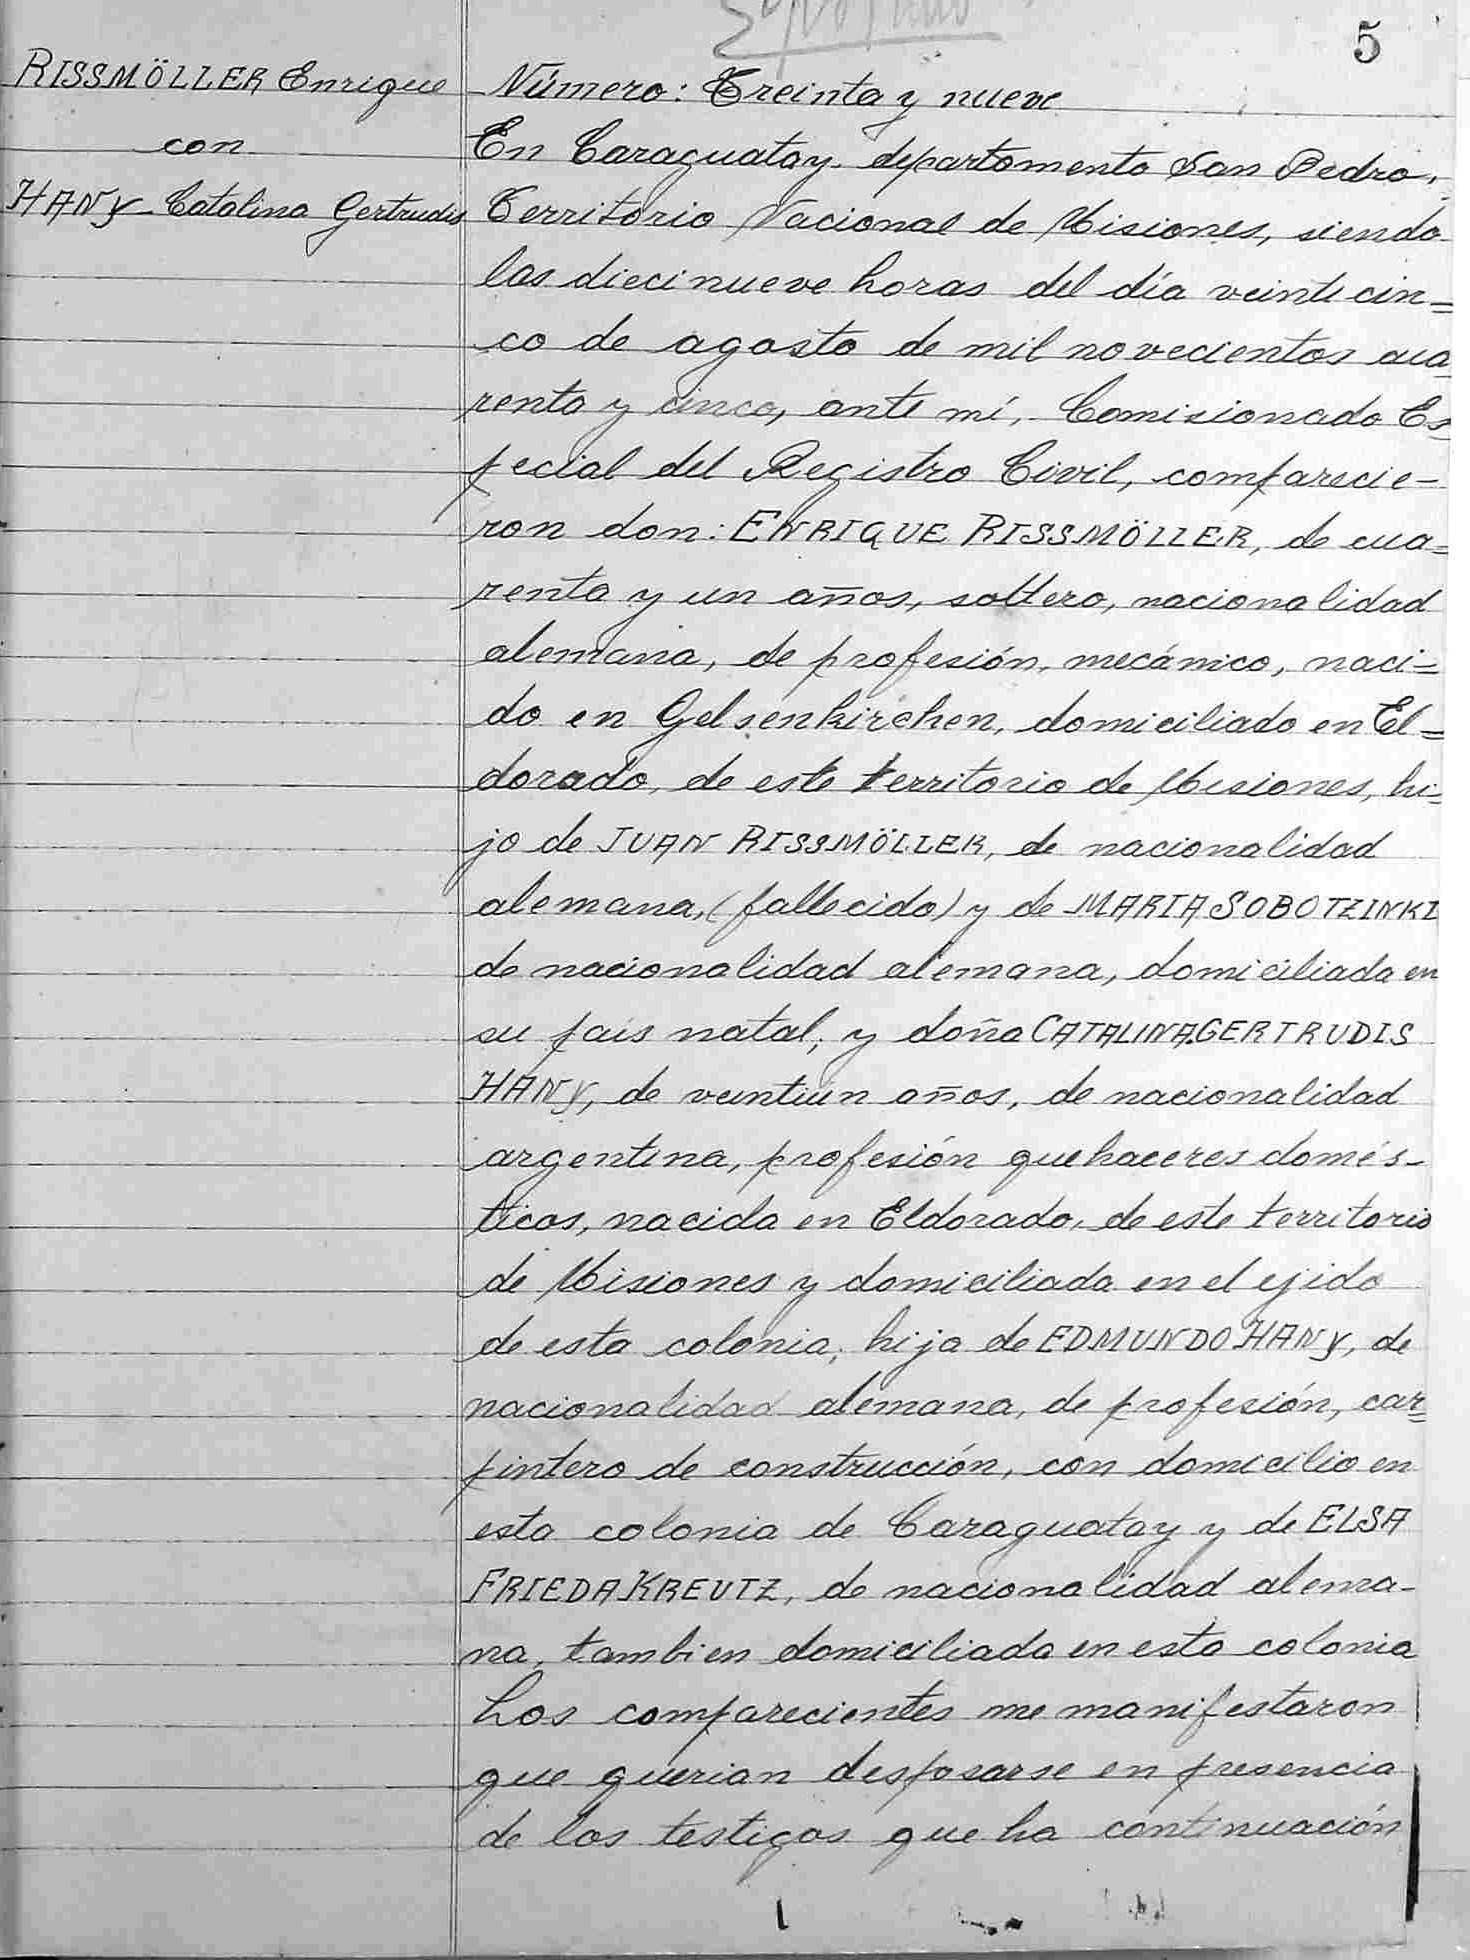 5
RISSMÖLLER Enrique
con
HANY Catalina Gertrudis
Número: Treinta y nueve
En Caraguatay, departamento San Pedro,
Territorio Nacional de Misiones, siendo
las diecinueve horas del día veinticin=
co de agosto de mil novecientos cua
renta y cinco, ante mí, Comisionado Es=
pecial del Registro Civil, comparecie-
ron don: ENRIQUE RISSMÖLLER, de cua=
renta y un años, soltero, nacionalidad
alemana, de profesión, mecánico, naci=
do en Gelsenkirchen, domiciliado en El=
dorado, de este territorio de Misiones, hi=
jo de JUAN RISSMÖLLER, de nacionalidad
alemana, (fallecido) y de MARIA SOBOTZINKI
de nacionalidad alemana, domiciliada en
su país natal; y doña CATALINA GERTRUDIS
HANY, de veintiún años, de nacionalidad
argentina, profesión quehaceres domés-
ticos, nacida en Eldorado, de este territorio
de Misiones y domiciliada en el ejido
de esta colonia; hija de EDMUNDO HANY, de
nacionalidad alemana, de profesión, car=
pintero de construcción, con domicilio en
esta colonia de Caraguatay y de ELSA
FRIEDA KREUTZ, de nacionalidad alema-
na, tambien domiciliada en esta colonia
Los comparecientes me manifestaron
que querian desposarse en presencia
de los testigos que ha continuación